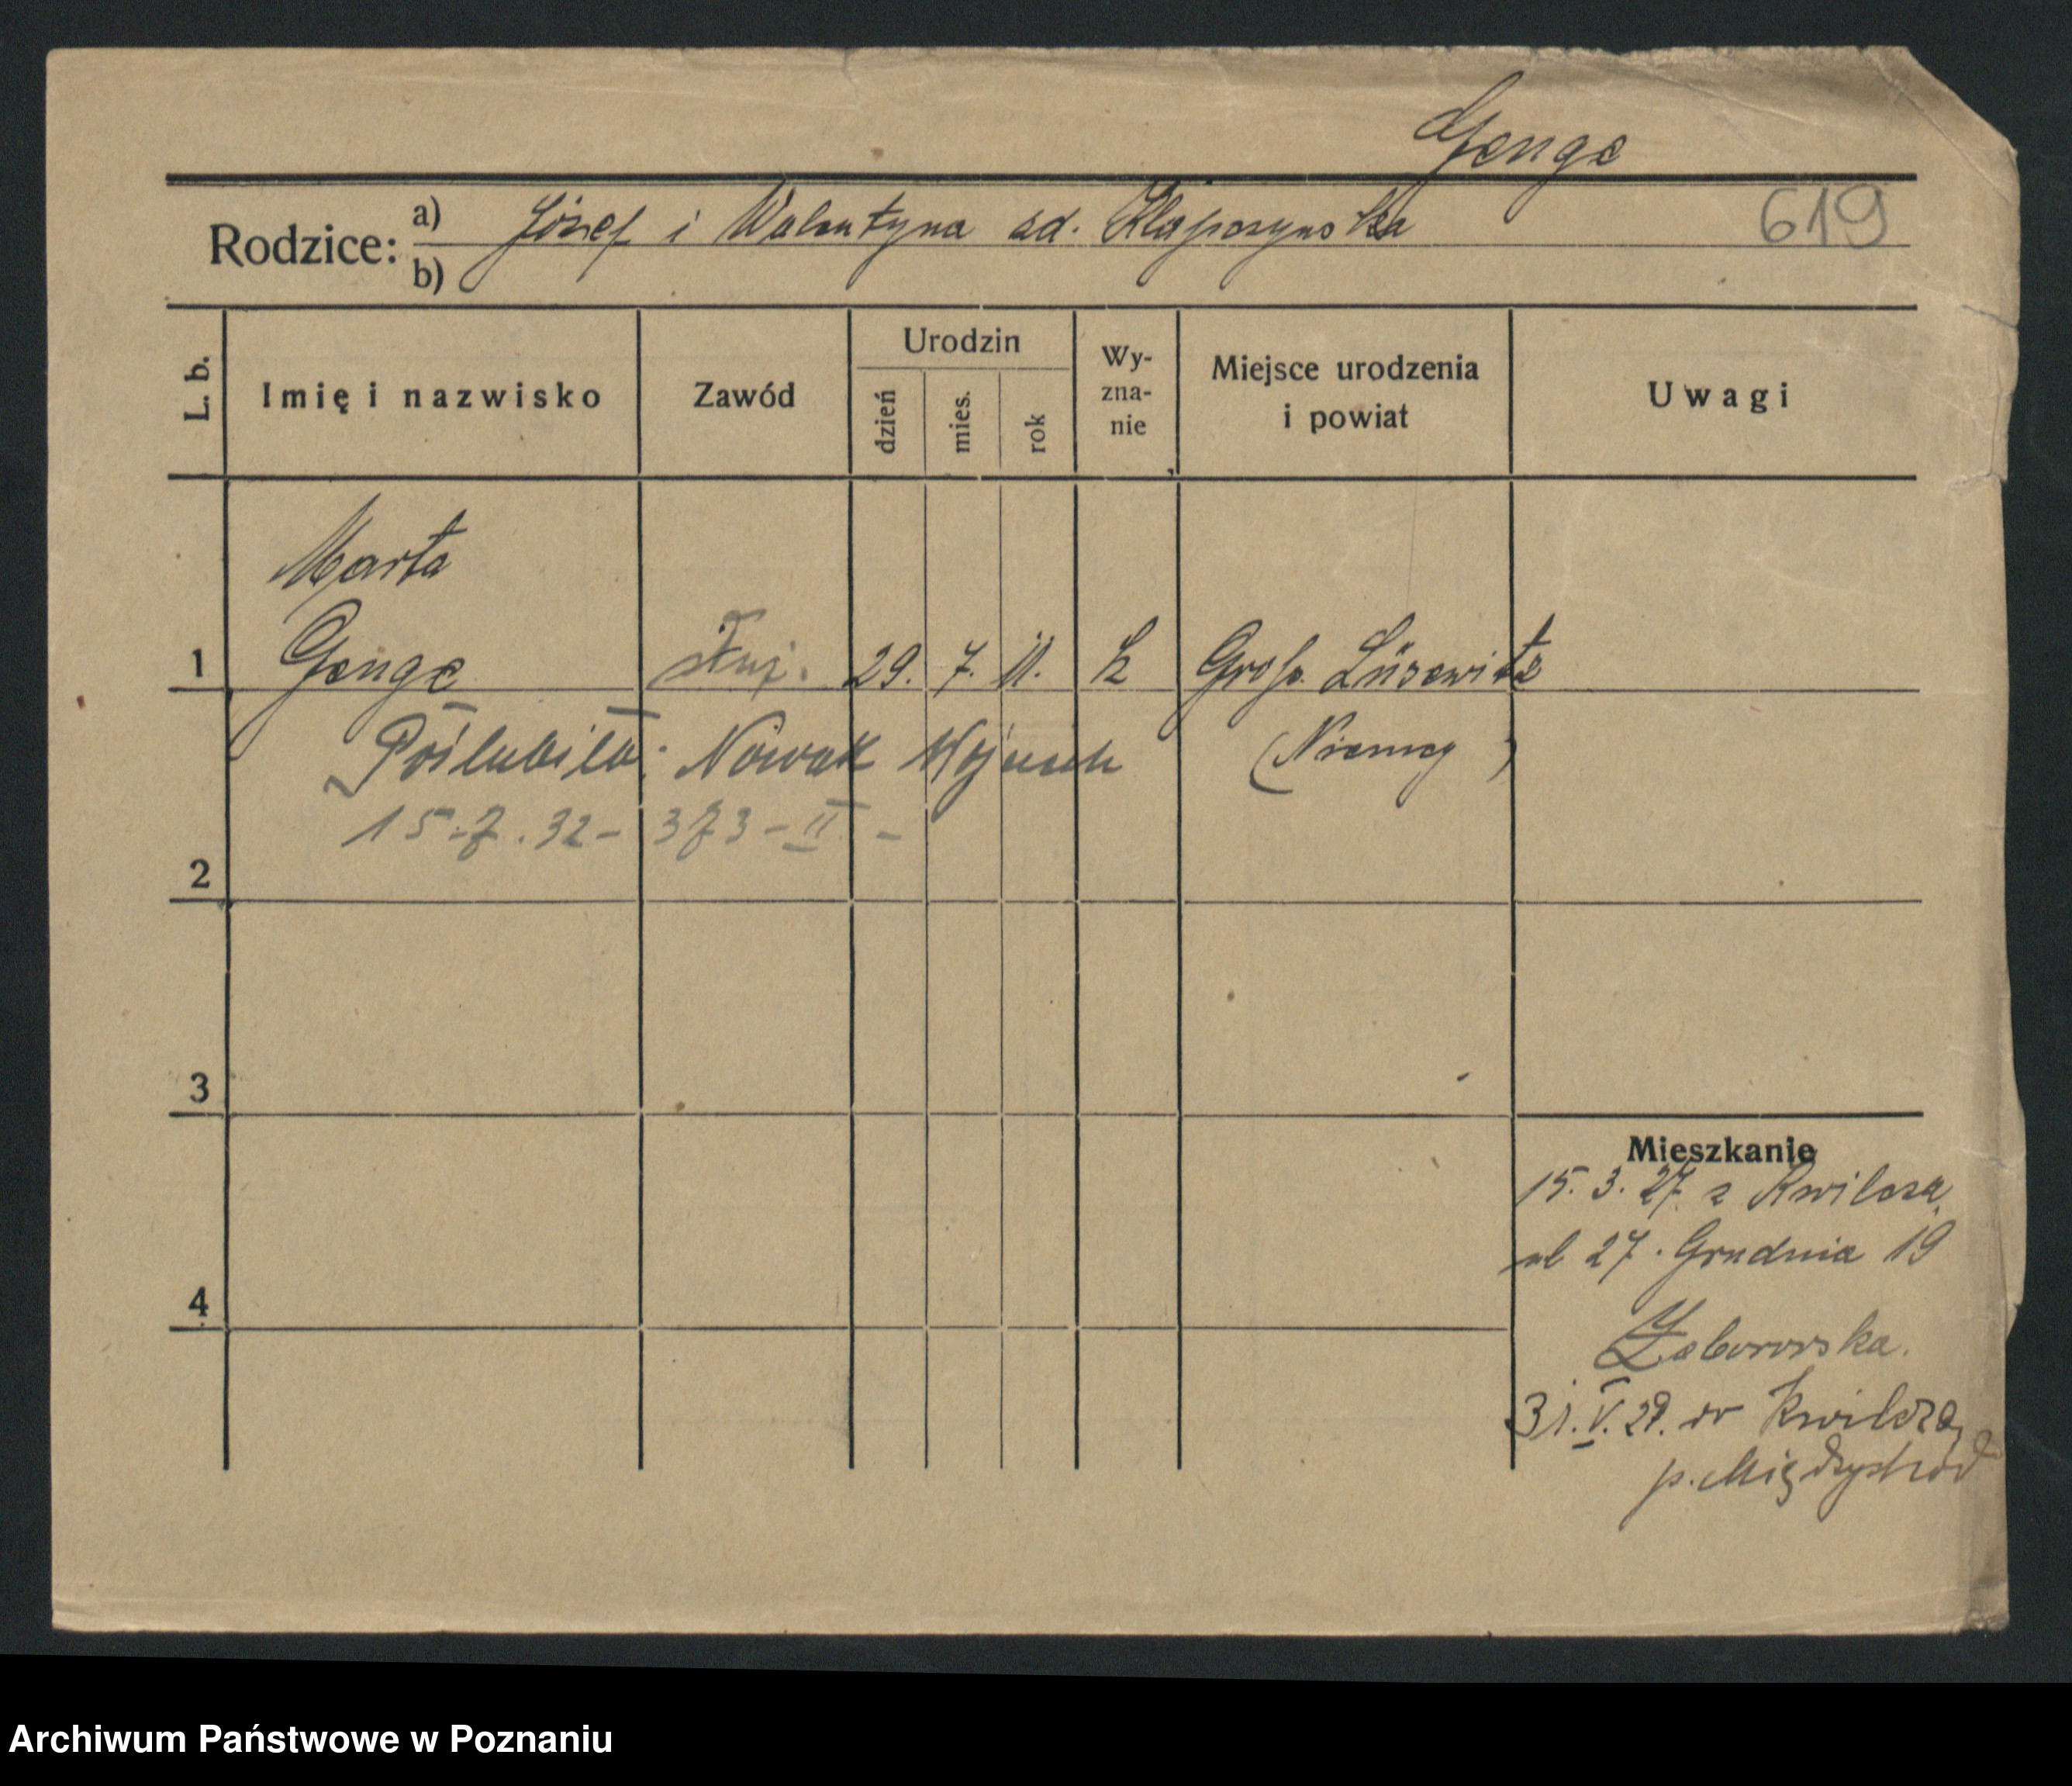 Genge
619
Rodzice:
a) Józef i Walentyna zd. Klapczynska
b)
L. b.
Imię i nazwisko
Zawód
Urodzin
dzień
mies.
rok
Wy-
zna-
nie
Miejsce urodzenia
i powiat
Uwagi
Marta
1 Genge służ. 29. 7. 11. k Gross. Lüsewitz
Poślubiła: Nowak Wojciech (Niemcy)
15.7.32 - 373 - II -
2
3
4
Mieszkanie
15. 3. 27. z Kwilcza,
ul 27. Grudnia 19
Zaborowska.
31. V. 29. do Kwilcza,
p. Międzychód